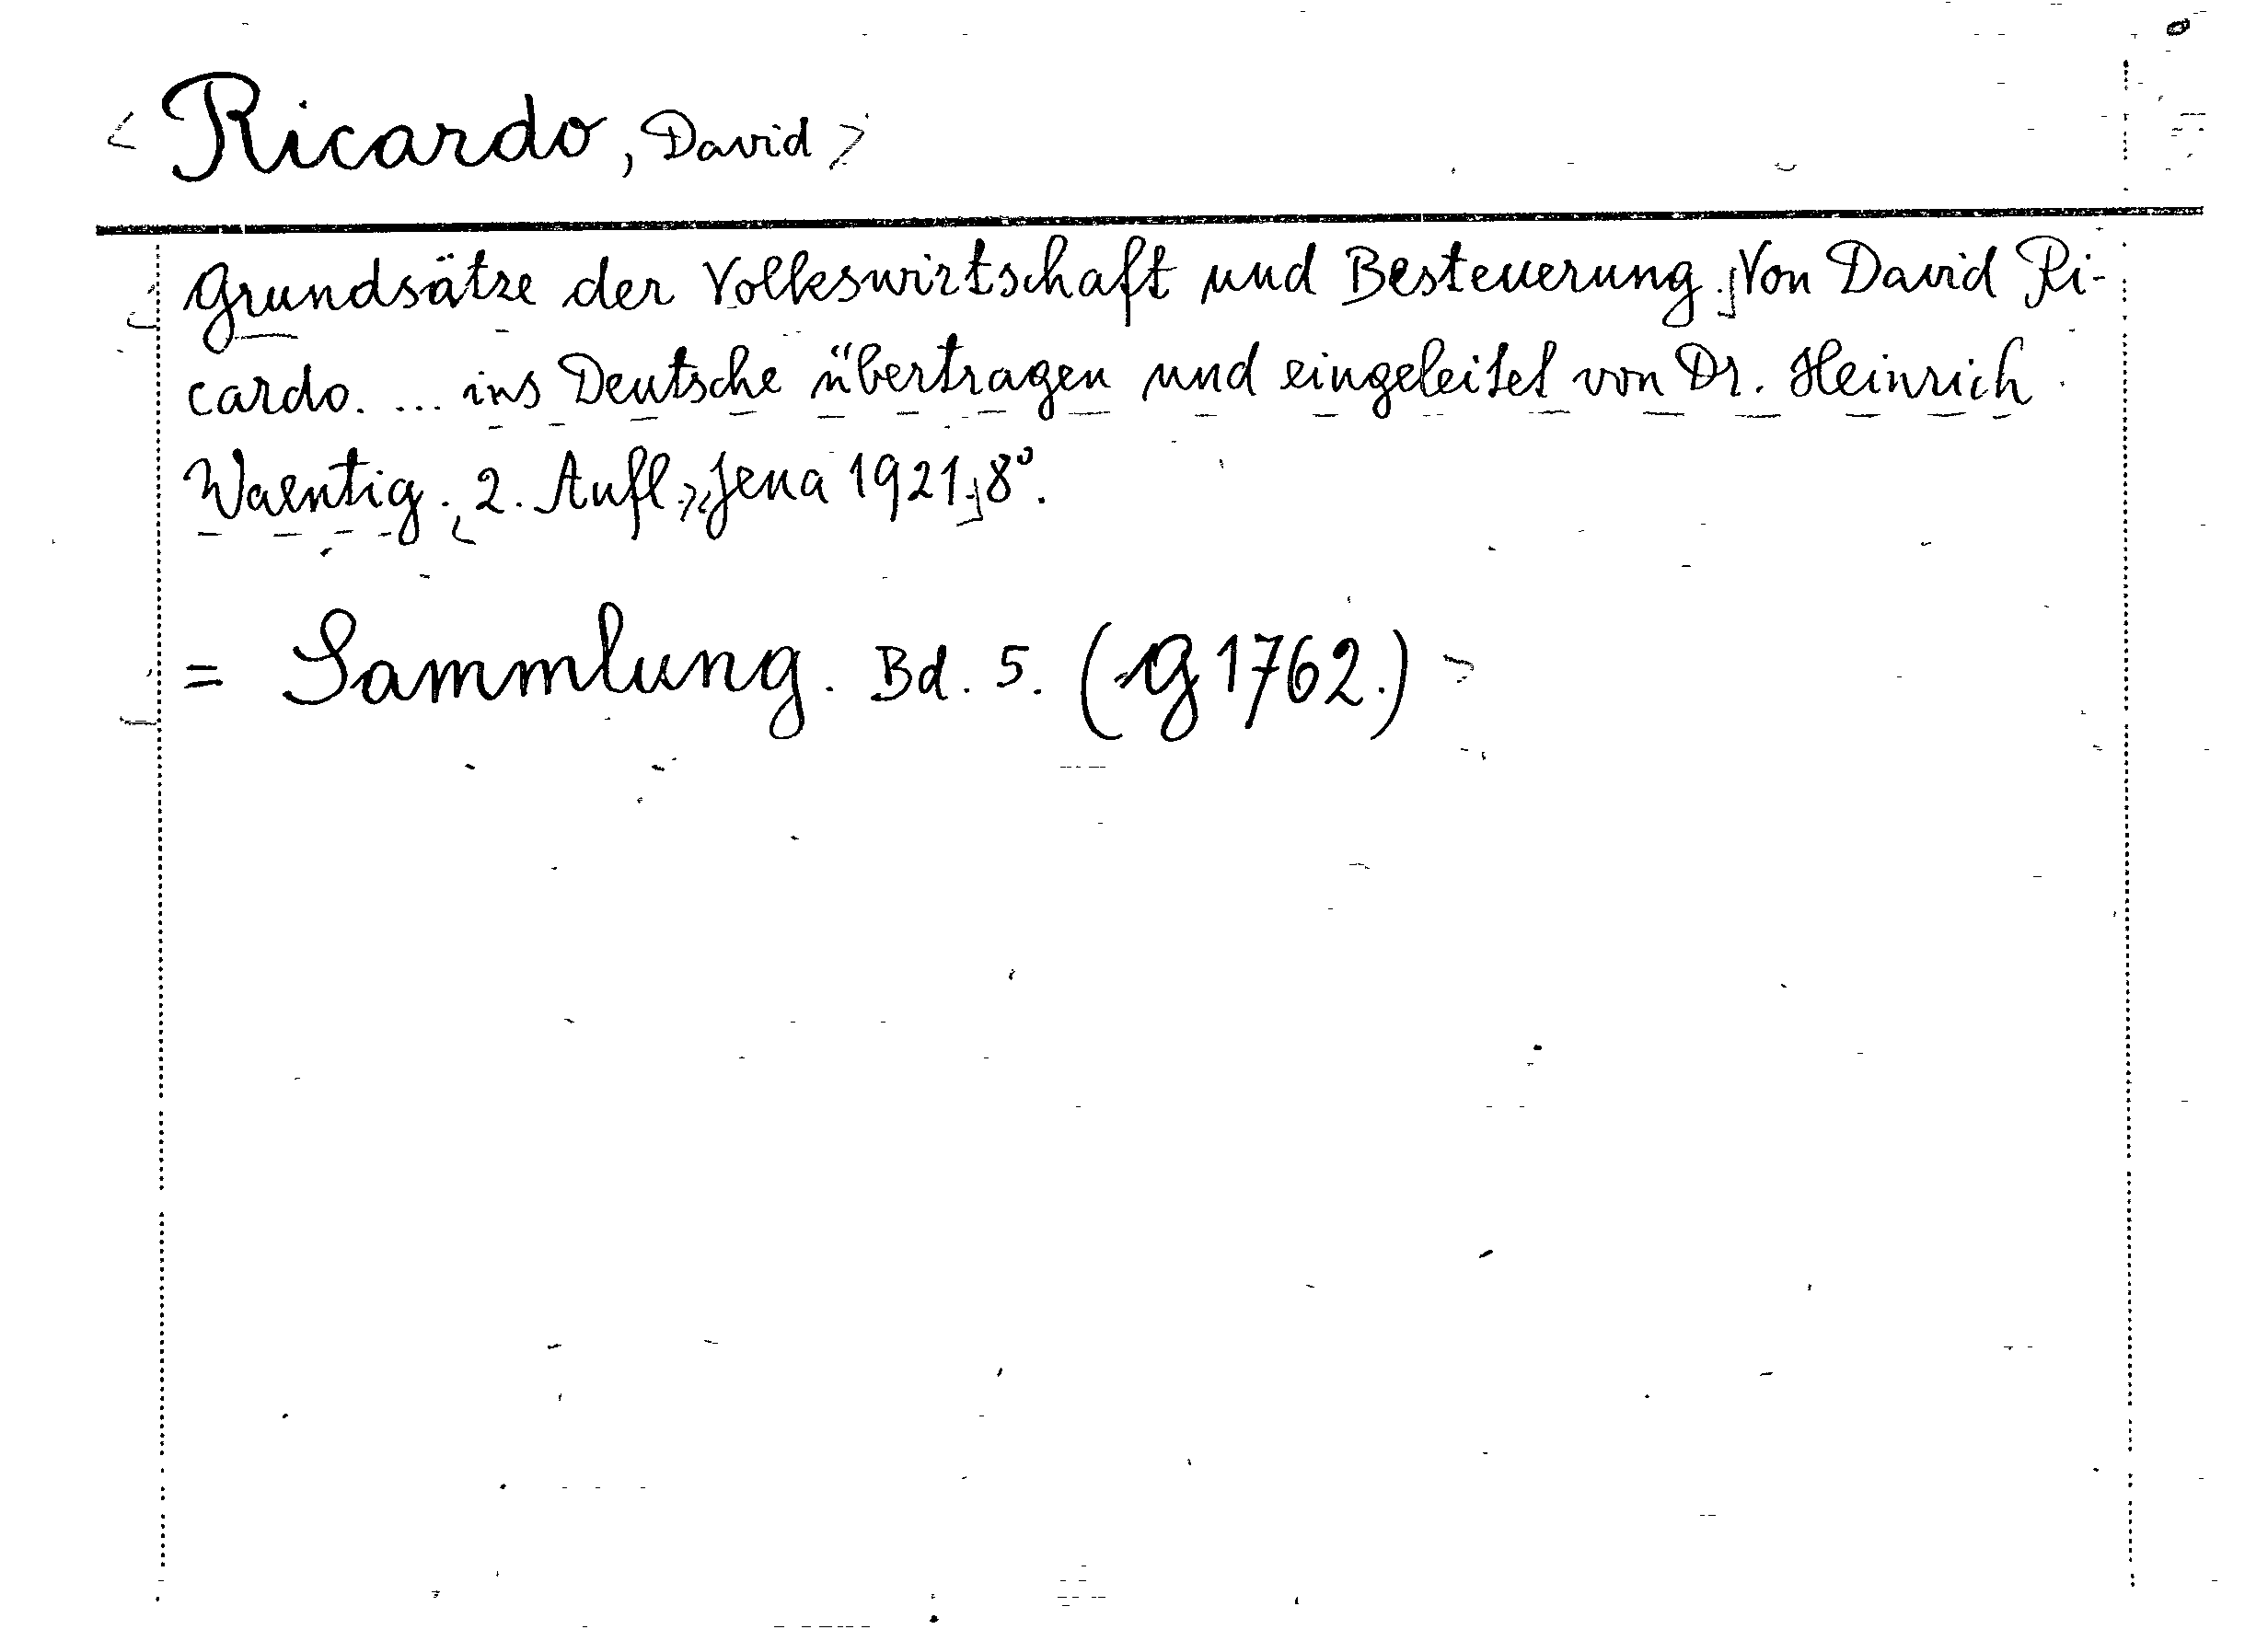 < Ricardo, David >
Grundsätze der Volkswirtschaft und Besteuerung. Von David Ri-
cardo. ... ins Deutsche übertragen und eingeleitet von Dr. Heinrich
Waentig. 2. Aufl. Jena 1921. 8°.
= Sammlung. Bd. 5. (G 1762.)